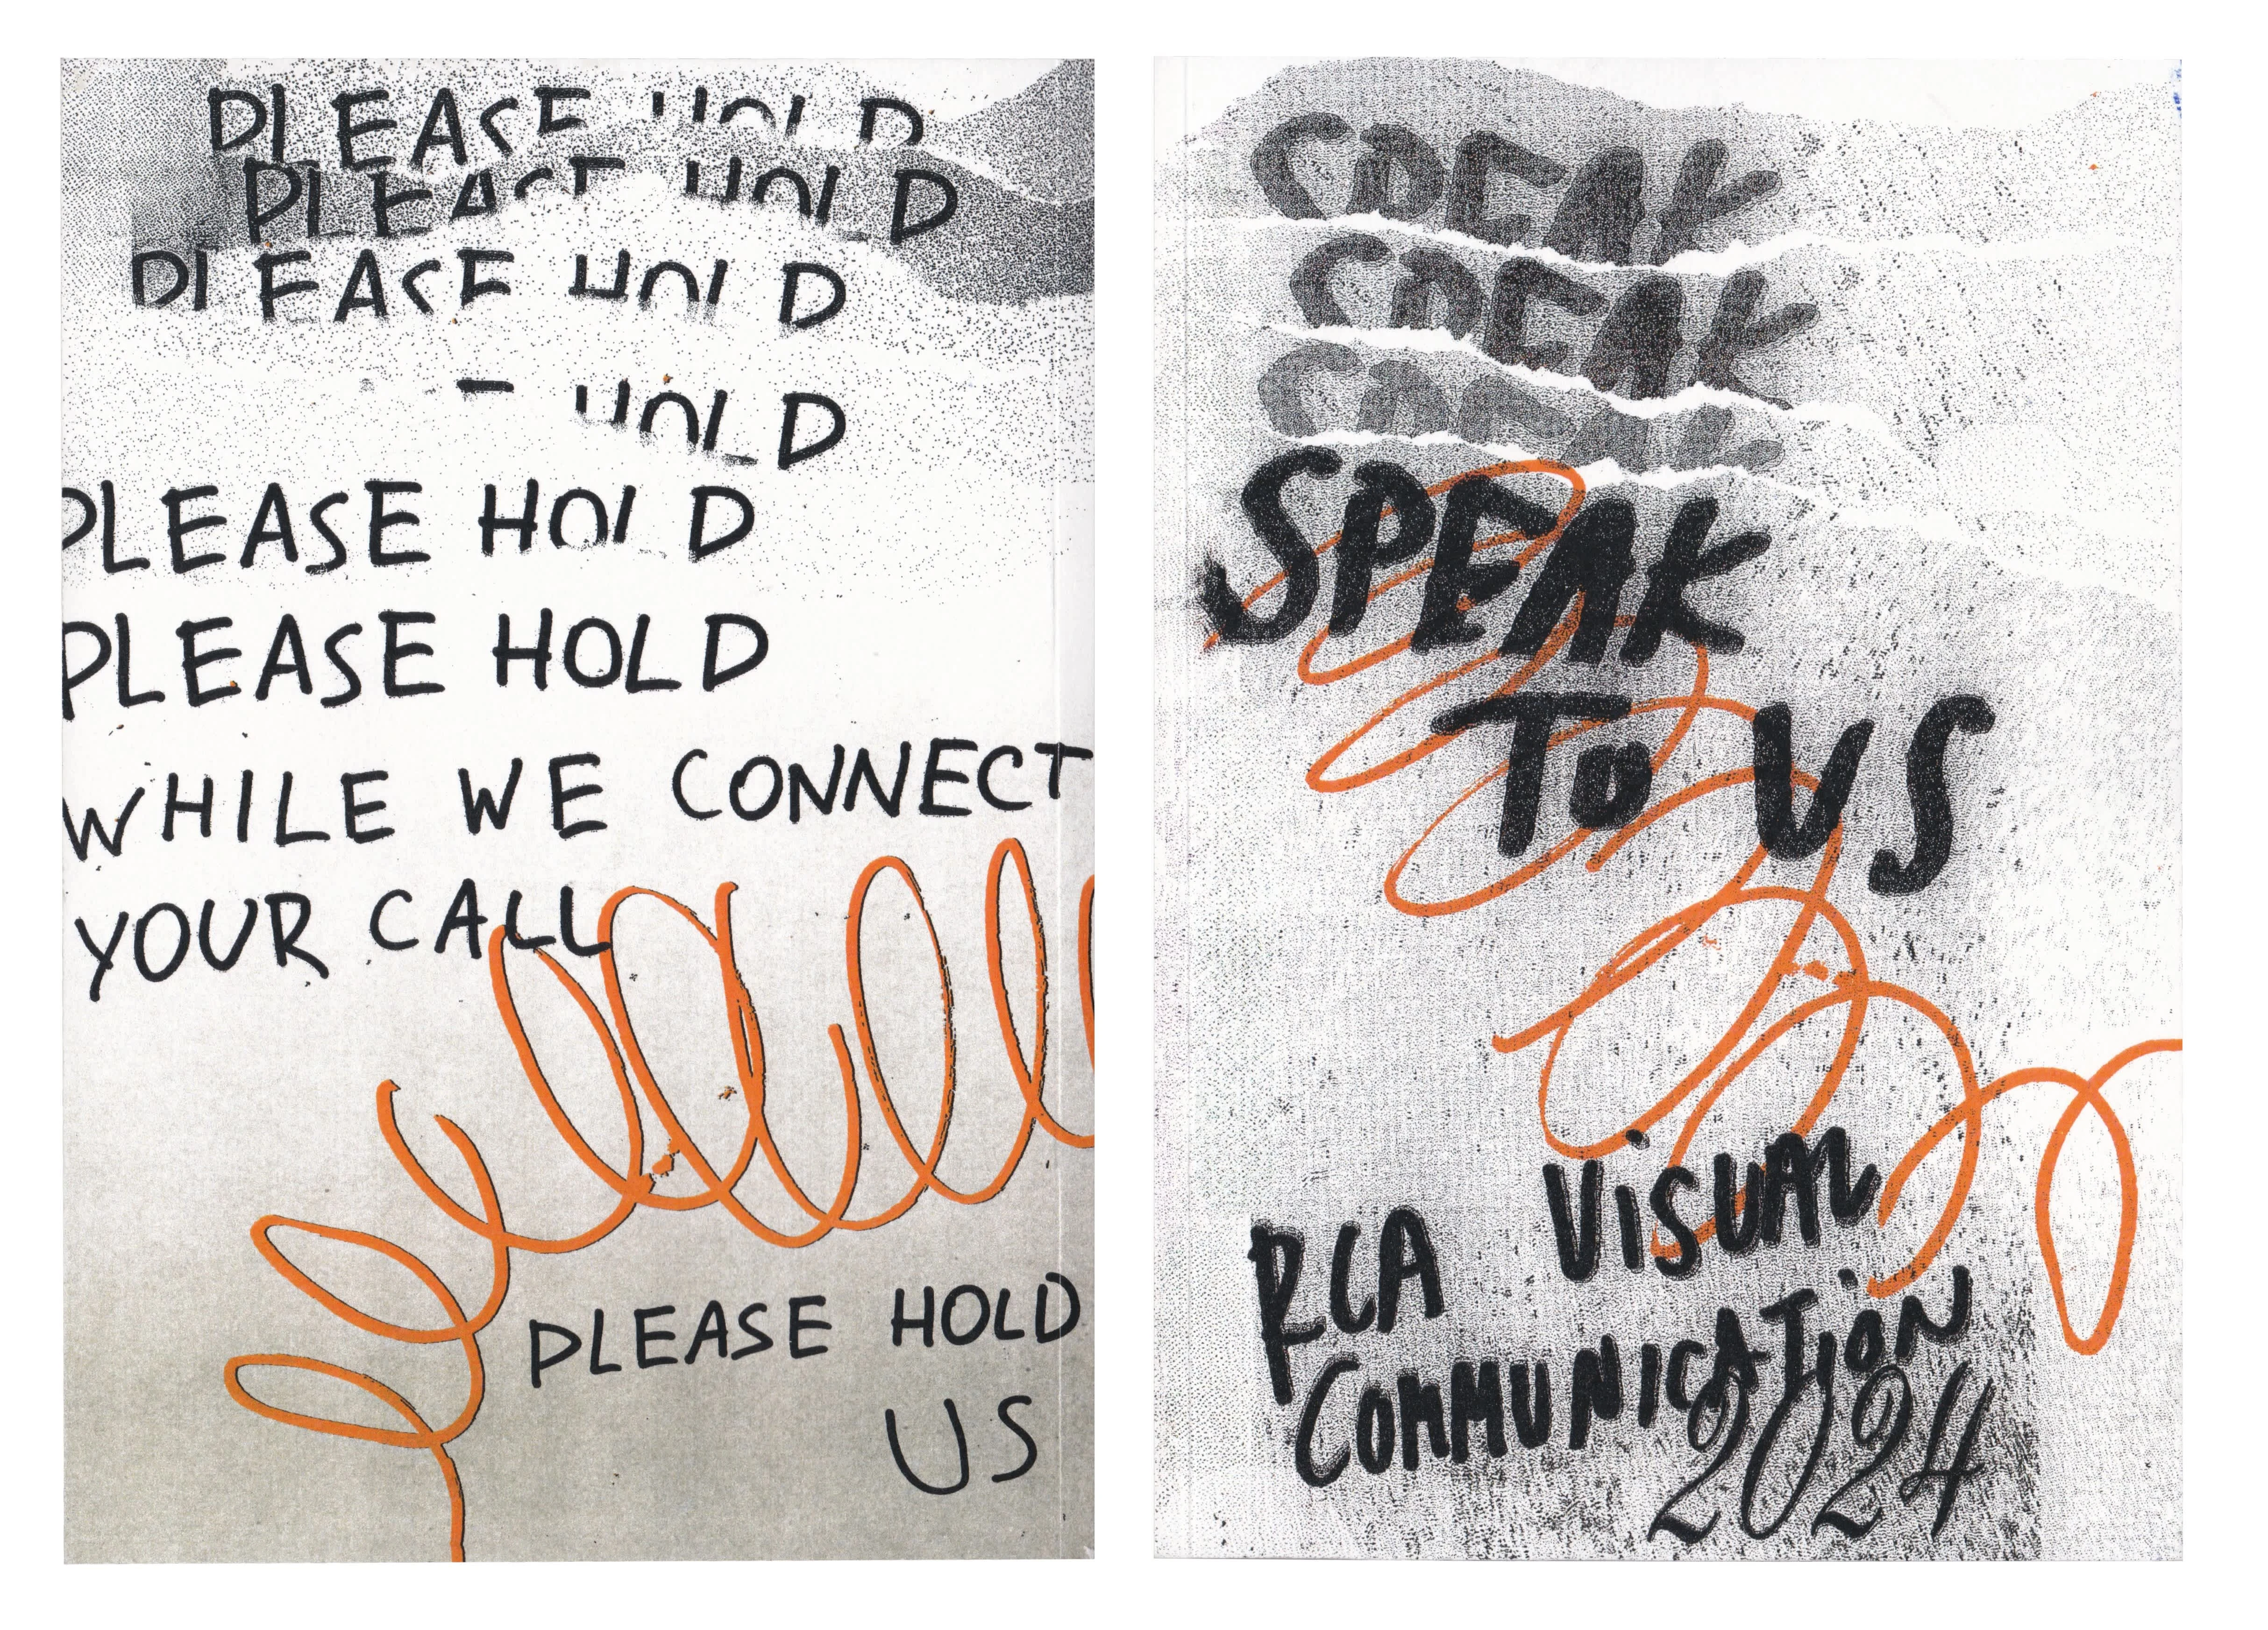 PLEASE HOLD
PLEASE HOLD
PLEASE HOLD
HOLD
PLEASE HOLD
PLEASE HOLD
WHILE WE CONNECT
YOUR CALL
PLEASE HOLD
US
SPEAK
SPEAK
SPEAK
SPEAK
TO US
RCA VISUAL
COMMUNICATION
2024